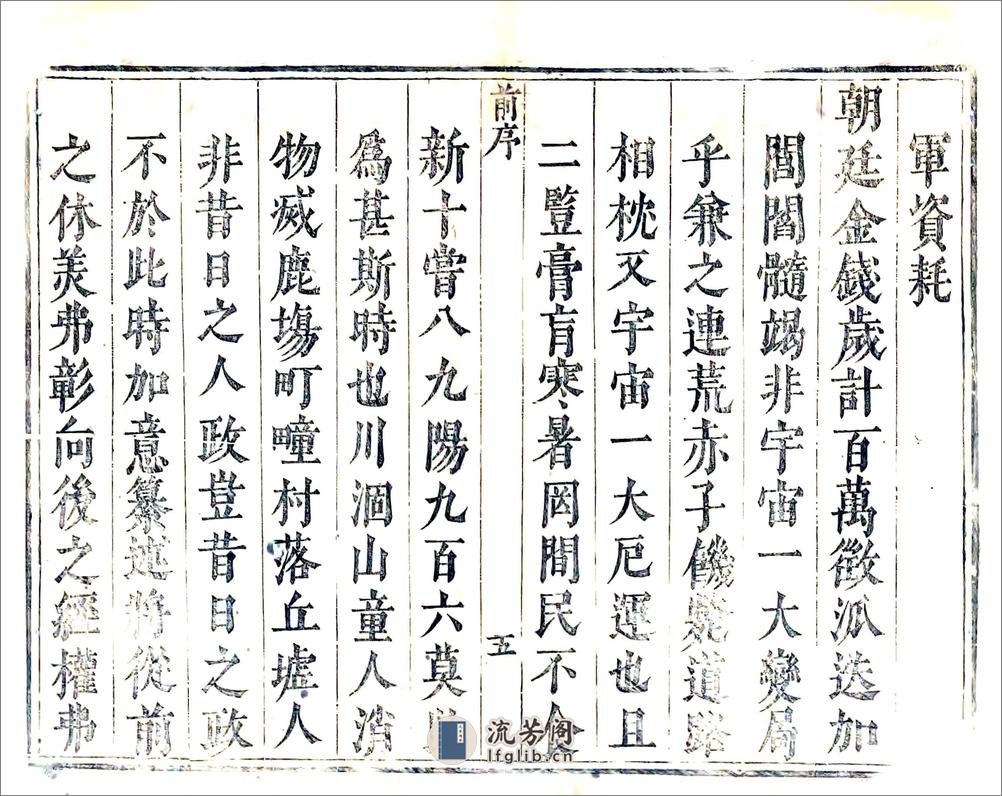 軍資耗
朝廷金錢歲計百萬徵泒迭加
閭閻髓竭非宇宙一大變局
乎兼之連荒赤子饑斃道路
相枕又宇宙一大厄運也且
二豎膏肓寒暑罔間民不
前序 五
新十嘗八九陽九百六莫
爲甚斯時也川涸山童人消
物烕鹿塲町畽村落丘墟人
非昔日之人政豈昔日之政
不於此時加意纂述將從前
之休美弗彰向後之經權弗
流芳阁
lfglib.cn